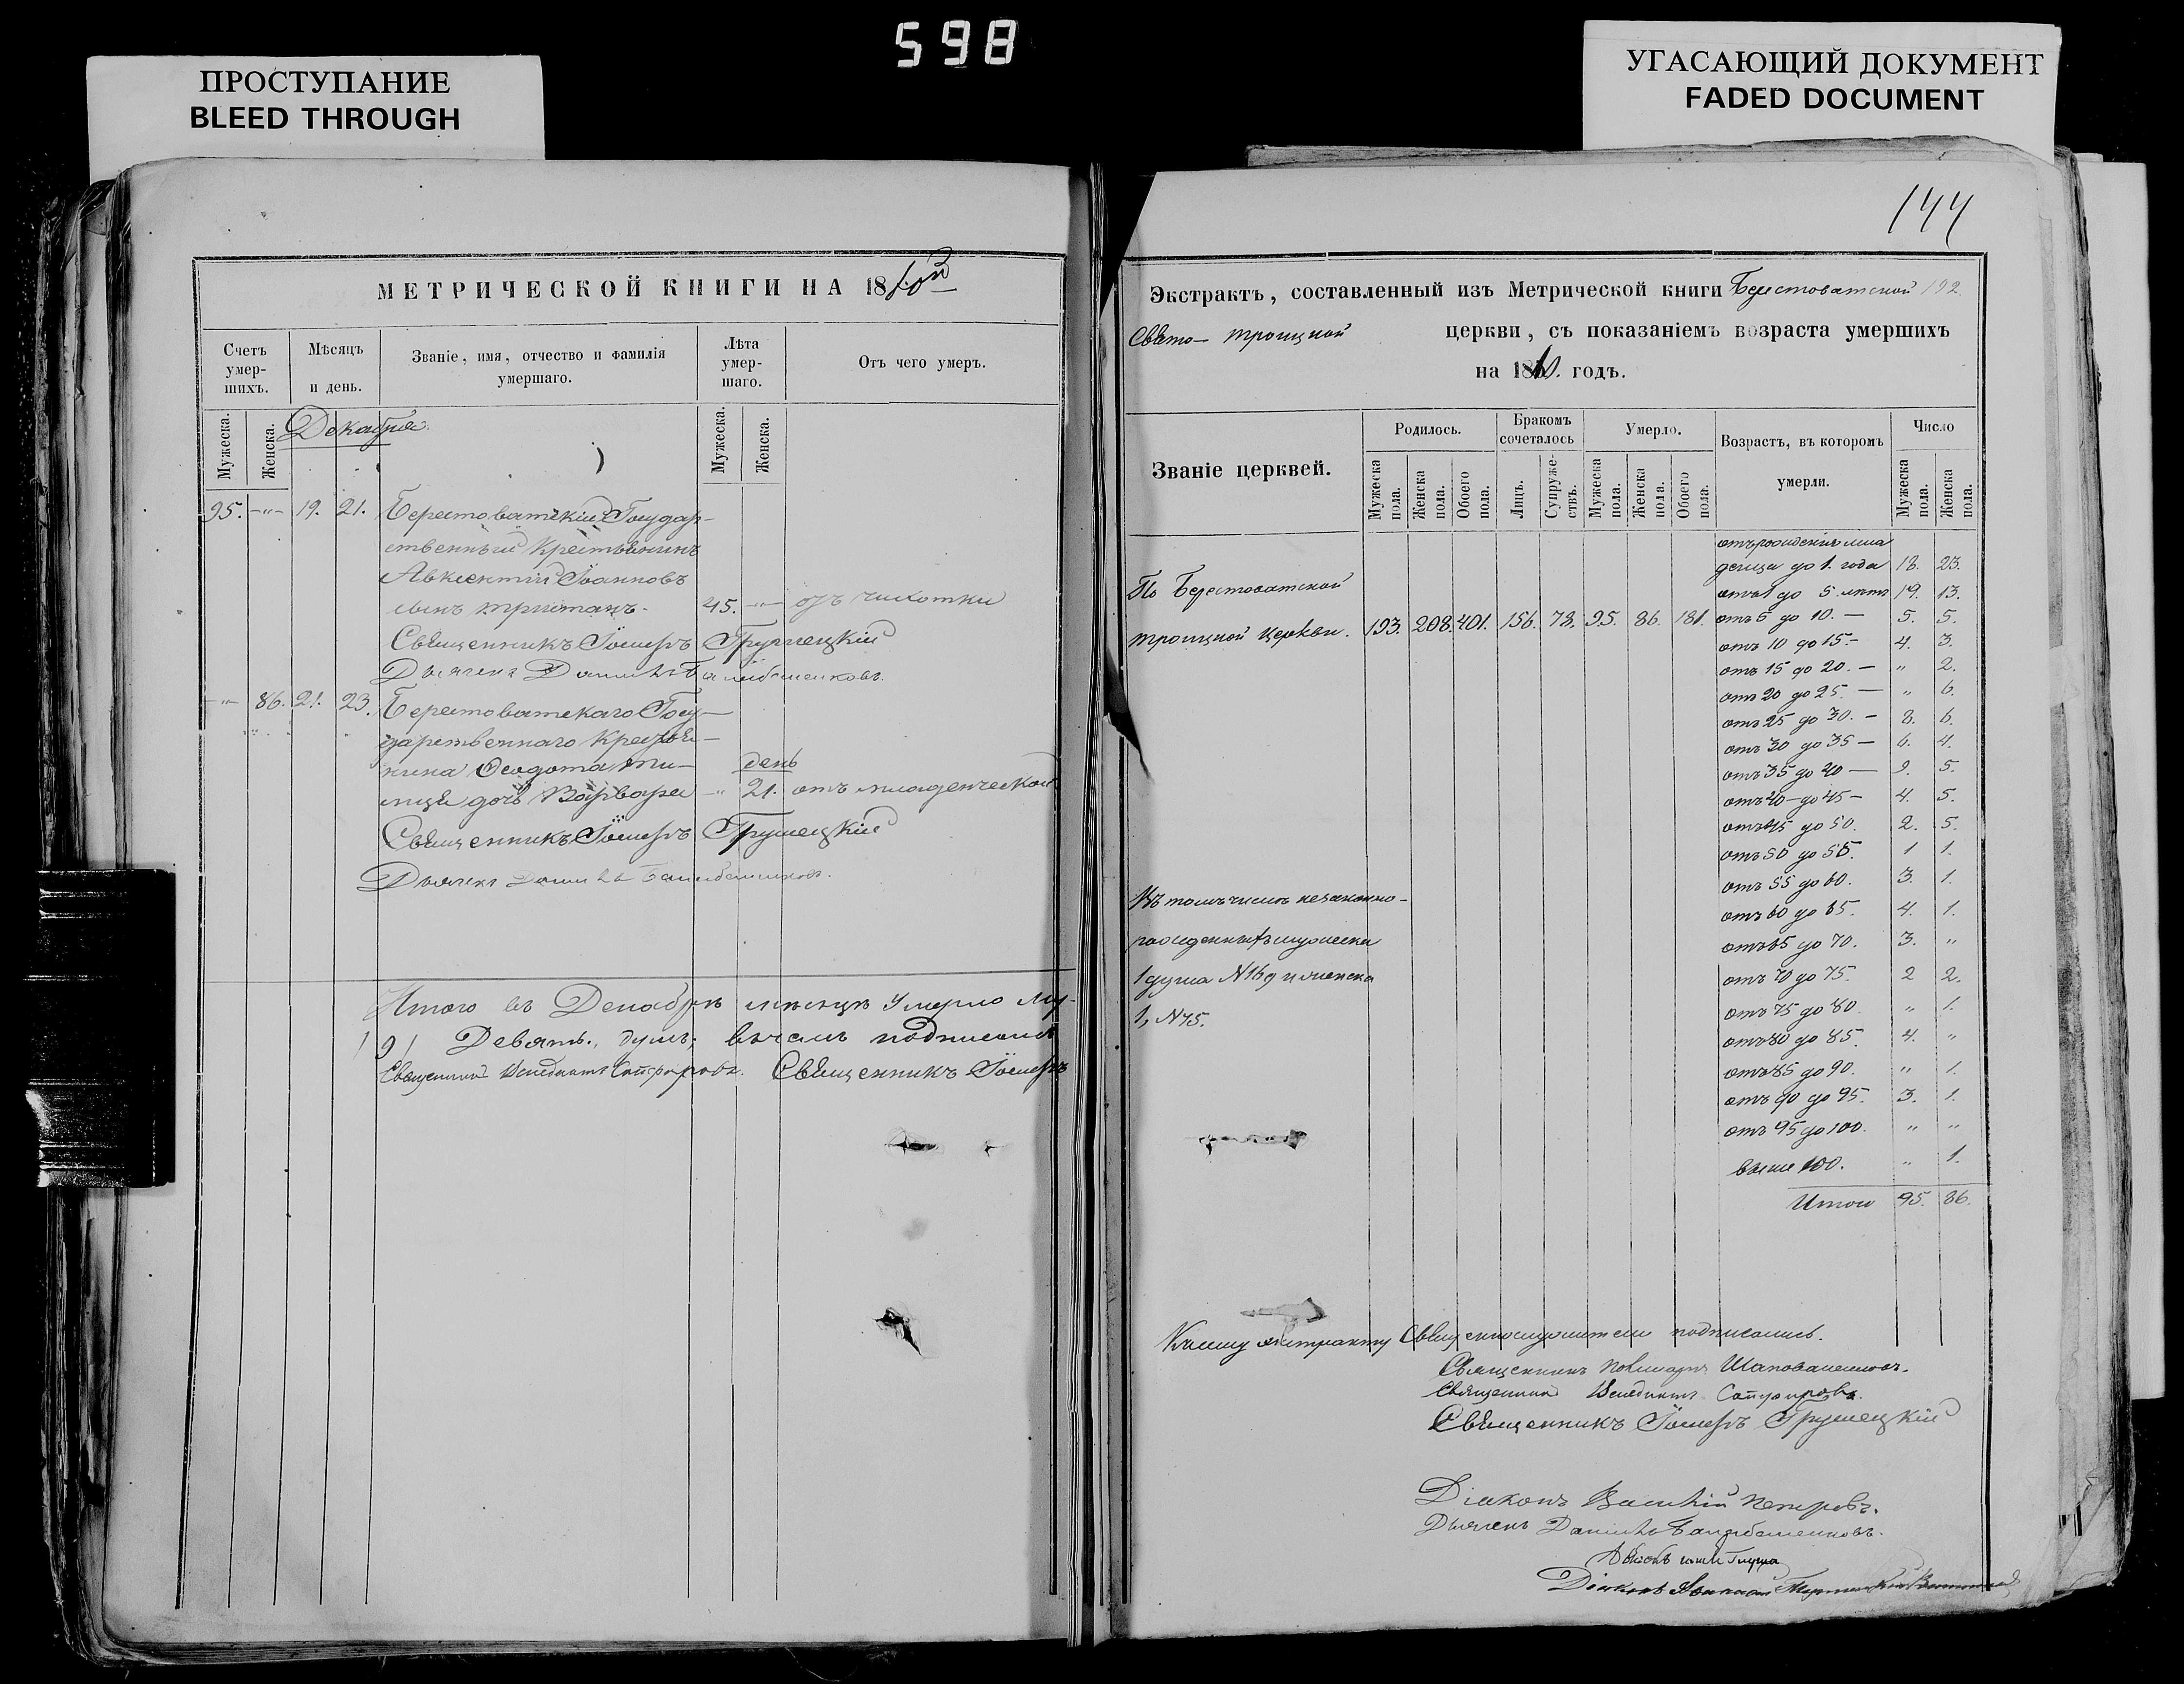 598
ПРОСТУПАНИЕ
BLEED THROUGH
УГАСАЮЩИЙ ДОКУМЕНТ
FADED DOCUMENT
МЕТРИЧЕСКОЙ КНИГИ НА 1860й
Счетъ умер-шихъ.
Мѣсяцъ и день.
Званіе, имя, отчество и фамилія умершаго.
Лѣта умер-шаго.
Отъ чего умеръ.
Мужеска.
Женска.
Мужеска.
Женска.
Декабря.
95. -"- 19. 21. Берестоватскій Государ-
ственный Крестьянинъ
Авксентій Іоанновъ
сынъ 45. -"- отъ чихотки
Священникъ Іосифъ Грушецкій
Дьячекъ Даніилъ
-"- 86. 21. 23. Берестоватскаго Госу-
дарственнаго Крестья-
нина Ѳеодота
день
дочь Варвара " 21. отъ младенческой
Священникъ Іосифъ Грушецкій
Дьячекъ Даніилъ
Итого въ Декабрѣ мѣсяцѣ Умерло му-
9/ Девять, душъ; въ чемъ подписались
Священникъ Сатфировъ. Священникъ Іосифъ
144
Экстрактъ, составленный изъ Метрической книги Берестоватской 192.
Свято-Троицкой церкви, съ показаніемъ возраста умершихъ
на 1860. годъ.
Званіе церквей.
Родилось.
Бракомъ сочеталось
Умерло.
Возрастъ, въ которомъ умерли.
Число
Мужеска пола.
Женска пола.
Обоего пола.
Лицъ.
Супруже-ствъ.
Мужеска пола.
Женска пола.
Обоего пола.
Мужеска пола.
Женска пола.
отъ рожденія мла
денца до 1. года 18. 23.
По Берестоватской
отъ 1 до 5. лѣтъ 19. 13.
Троицкой Церкви. 193. 208. 401. 156. 78. 95. 86. 181. отъ 5 до 10. — 5. 5.
отъ 10 до 15. - 4. 3.
отъ 15 до 20. — " 2.
отъ 20 до 25. — " 6.
отъ 25 до 30. - 8. 6.
отъ 30 до 35 — 6. 4.
отъ 35 до 40 — 9. 5.
отъ 40 - до 45 - 4. 5.
отъ 45 до 50. 2. 5.
отъ 50 до 55. 1 1.
отъ 55 до 60. 3. 1.
Въ томъ числѣ незаконно-
отъ 60 до 65. 4. 1.
рожденныхъ мужеска
отъ 65 до 70. 3. "
1 душа N169 и женска
отъ 70 до 75. 2 2.
1, N45.
отъ 75 до 80. " 1.
отъ 80 до 85. 4. "
отъ 85 до 90. " 1.
отъ 90 до 95. 3. 1.
отъ 95 до 100. " "
выше 100. " 1.
Итого 95. 86.
Къ сему экстракту Священнослужители подписались.
Священникъ Шаповаленковъ.
Священникъ Сатфировъ.
Священникъ Іосифъ Грушецкій
Діаконъ Василій Петровъ.
Дьячекъ Даніилъ
Діаконъ